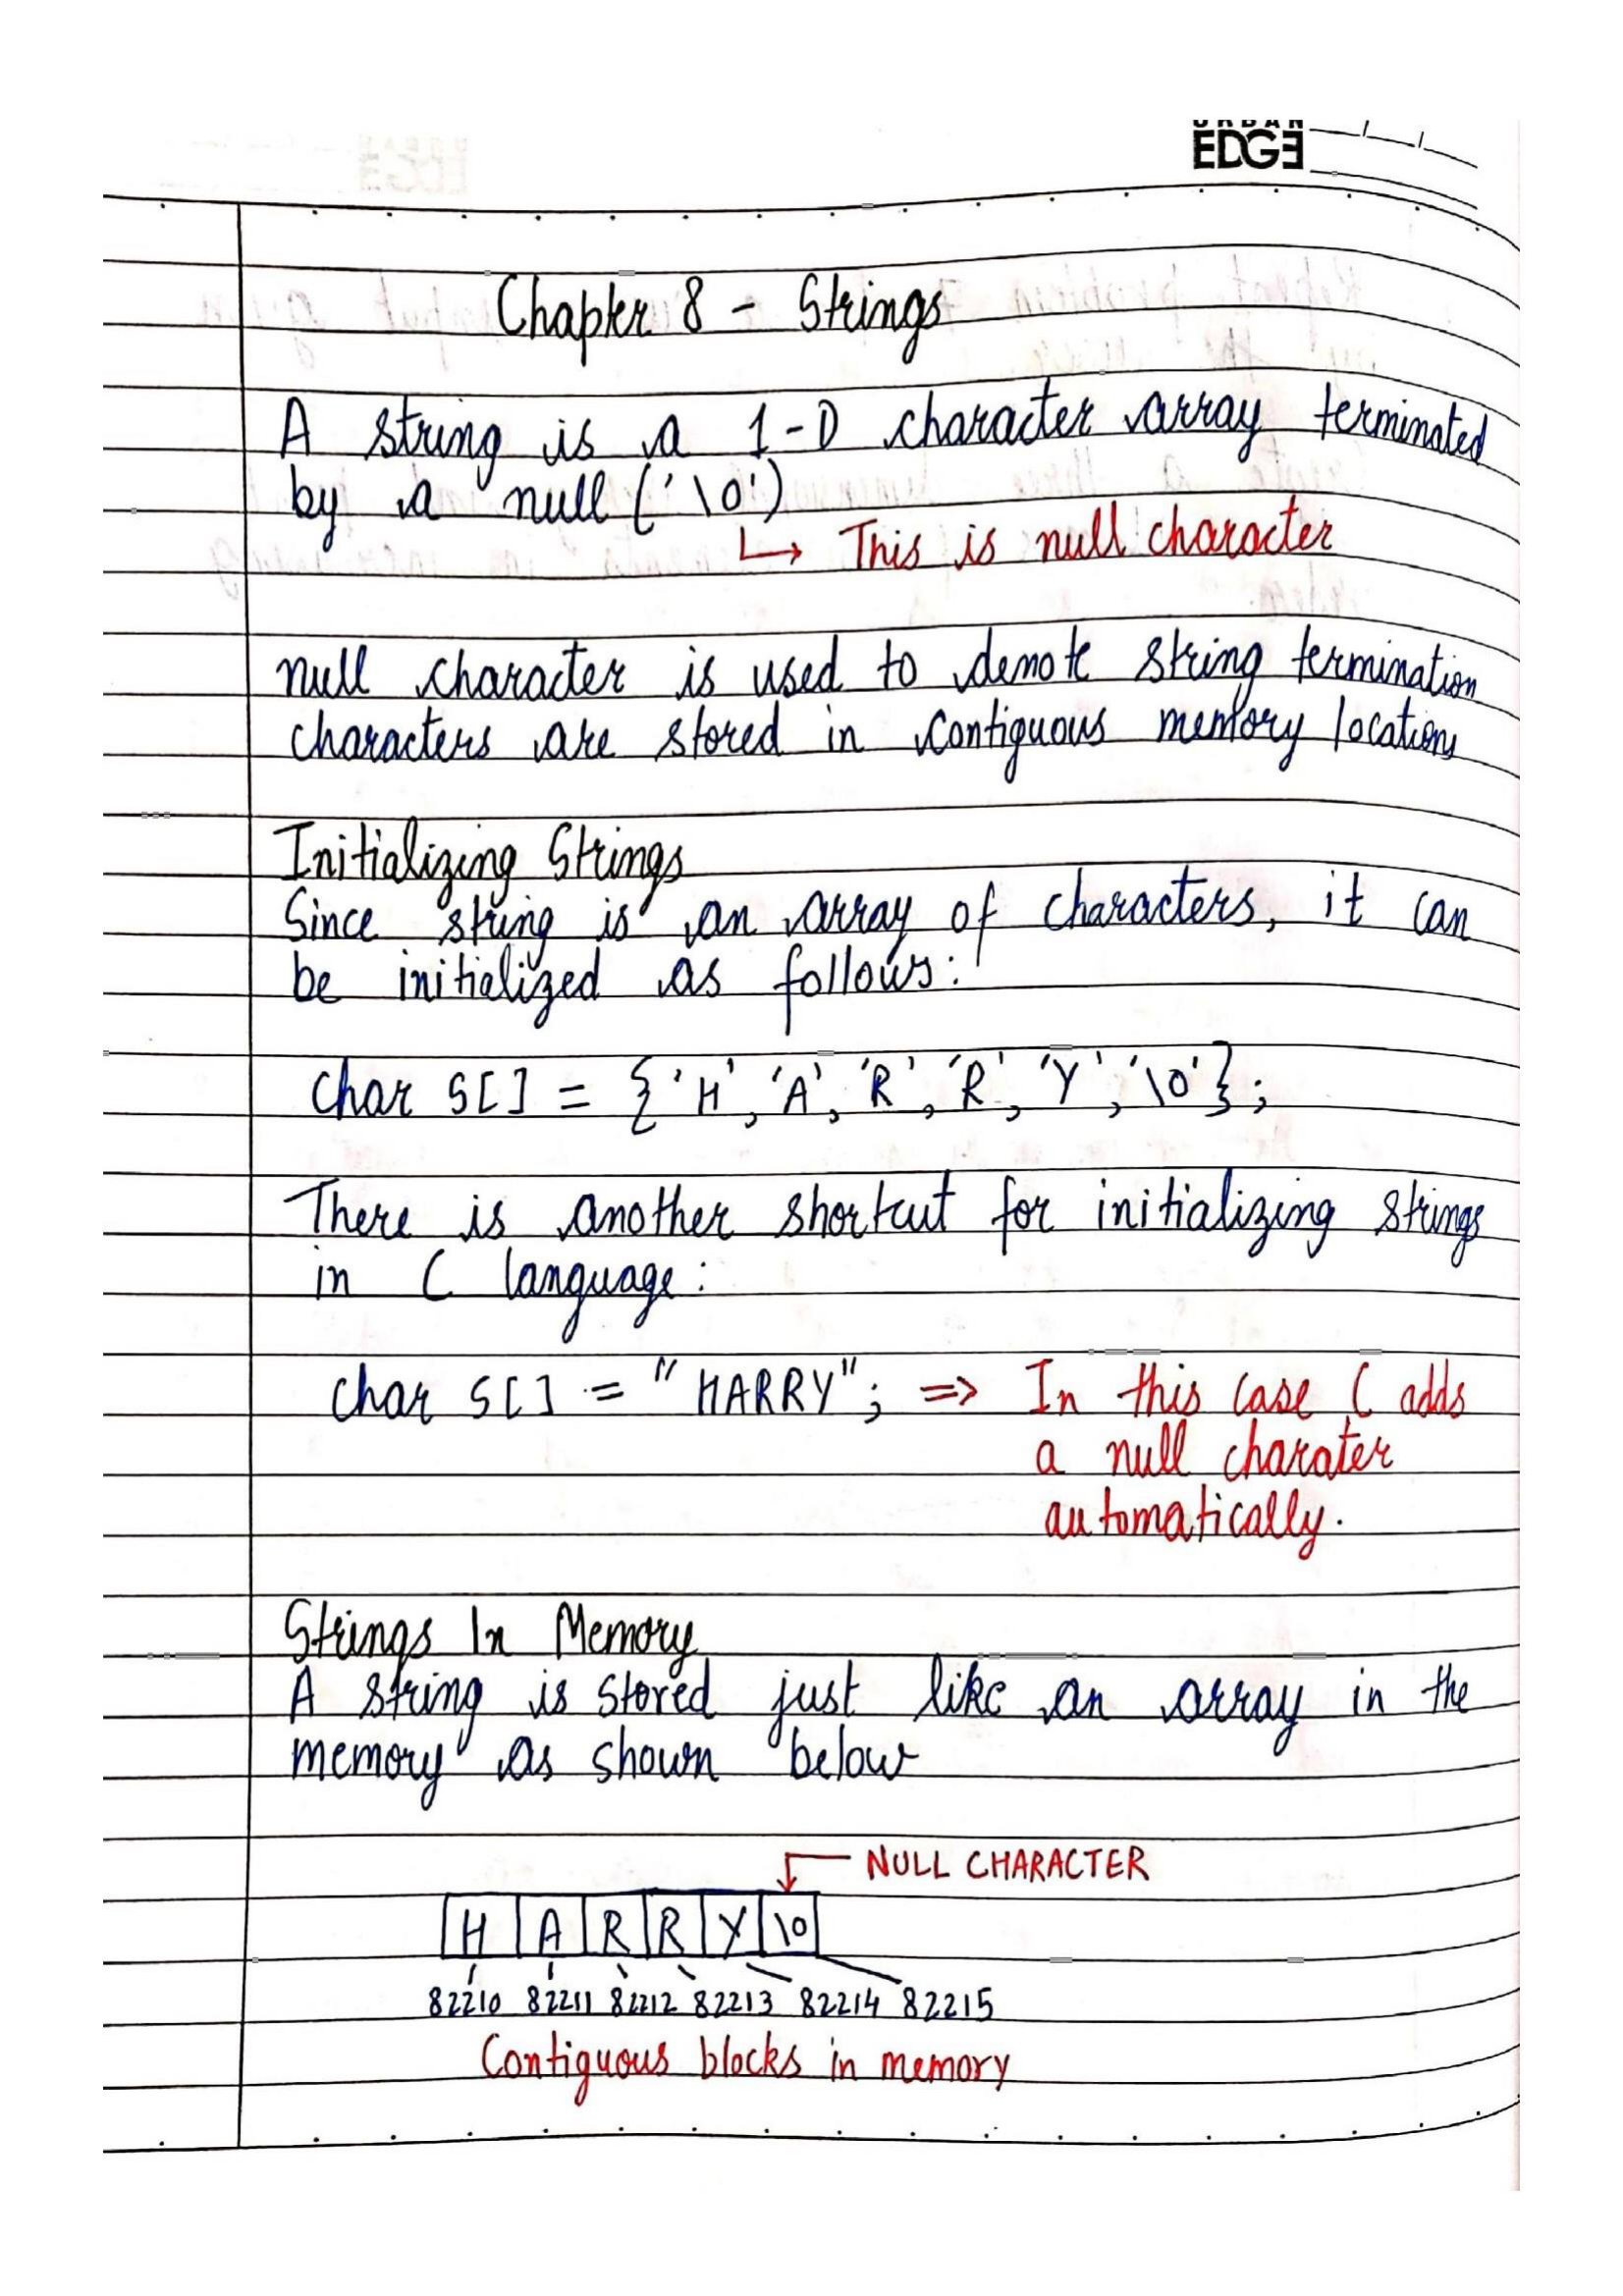 URBAN
EDGE
Chapter 8 - Strings
A string is a 1-D character array terminated
by a null ('\0')
↳ This is null character
null character is used to denote string termination
characters are stored in contiguous memory locations
Initializing Strings
Since string is an array of characters, it can
be initialized as follows:
char s[] = {'H', 'A', 'R', 'R', 'Y', '\0'};
There is another shortcut for initializing strings
in C language:
char s[] = "HARRY"; => In this case C adds
a null charater
automatically.
Strings In Memory
A string is stored just like an array in the
memory as shown below
NULL CHARACTER
H A R R Y \0
82210 82211 82212 82213 82214 82215
Contiguous blocks in memory